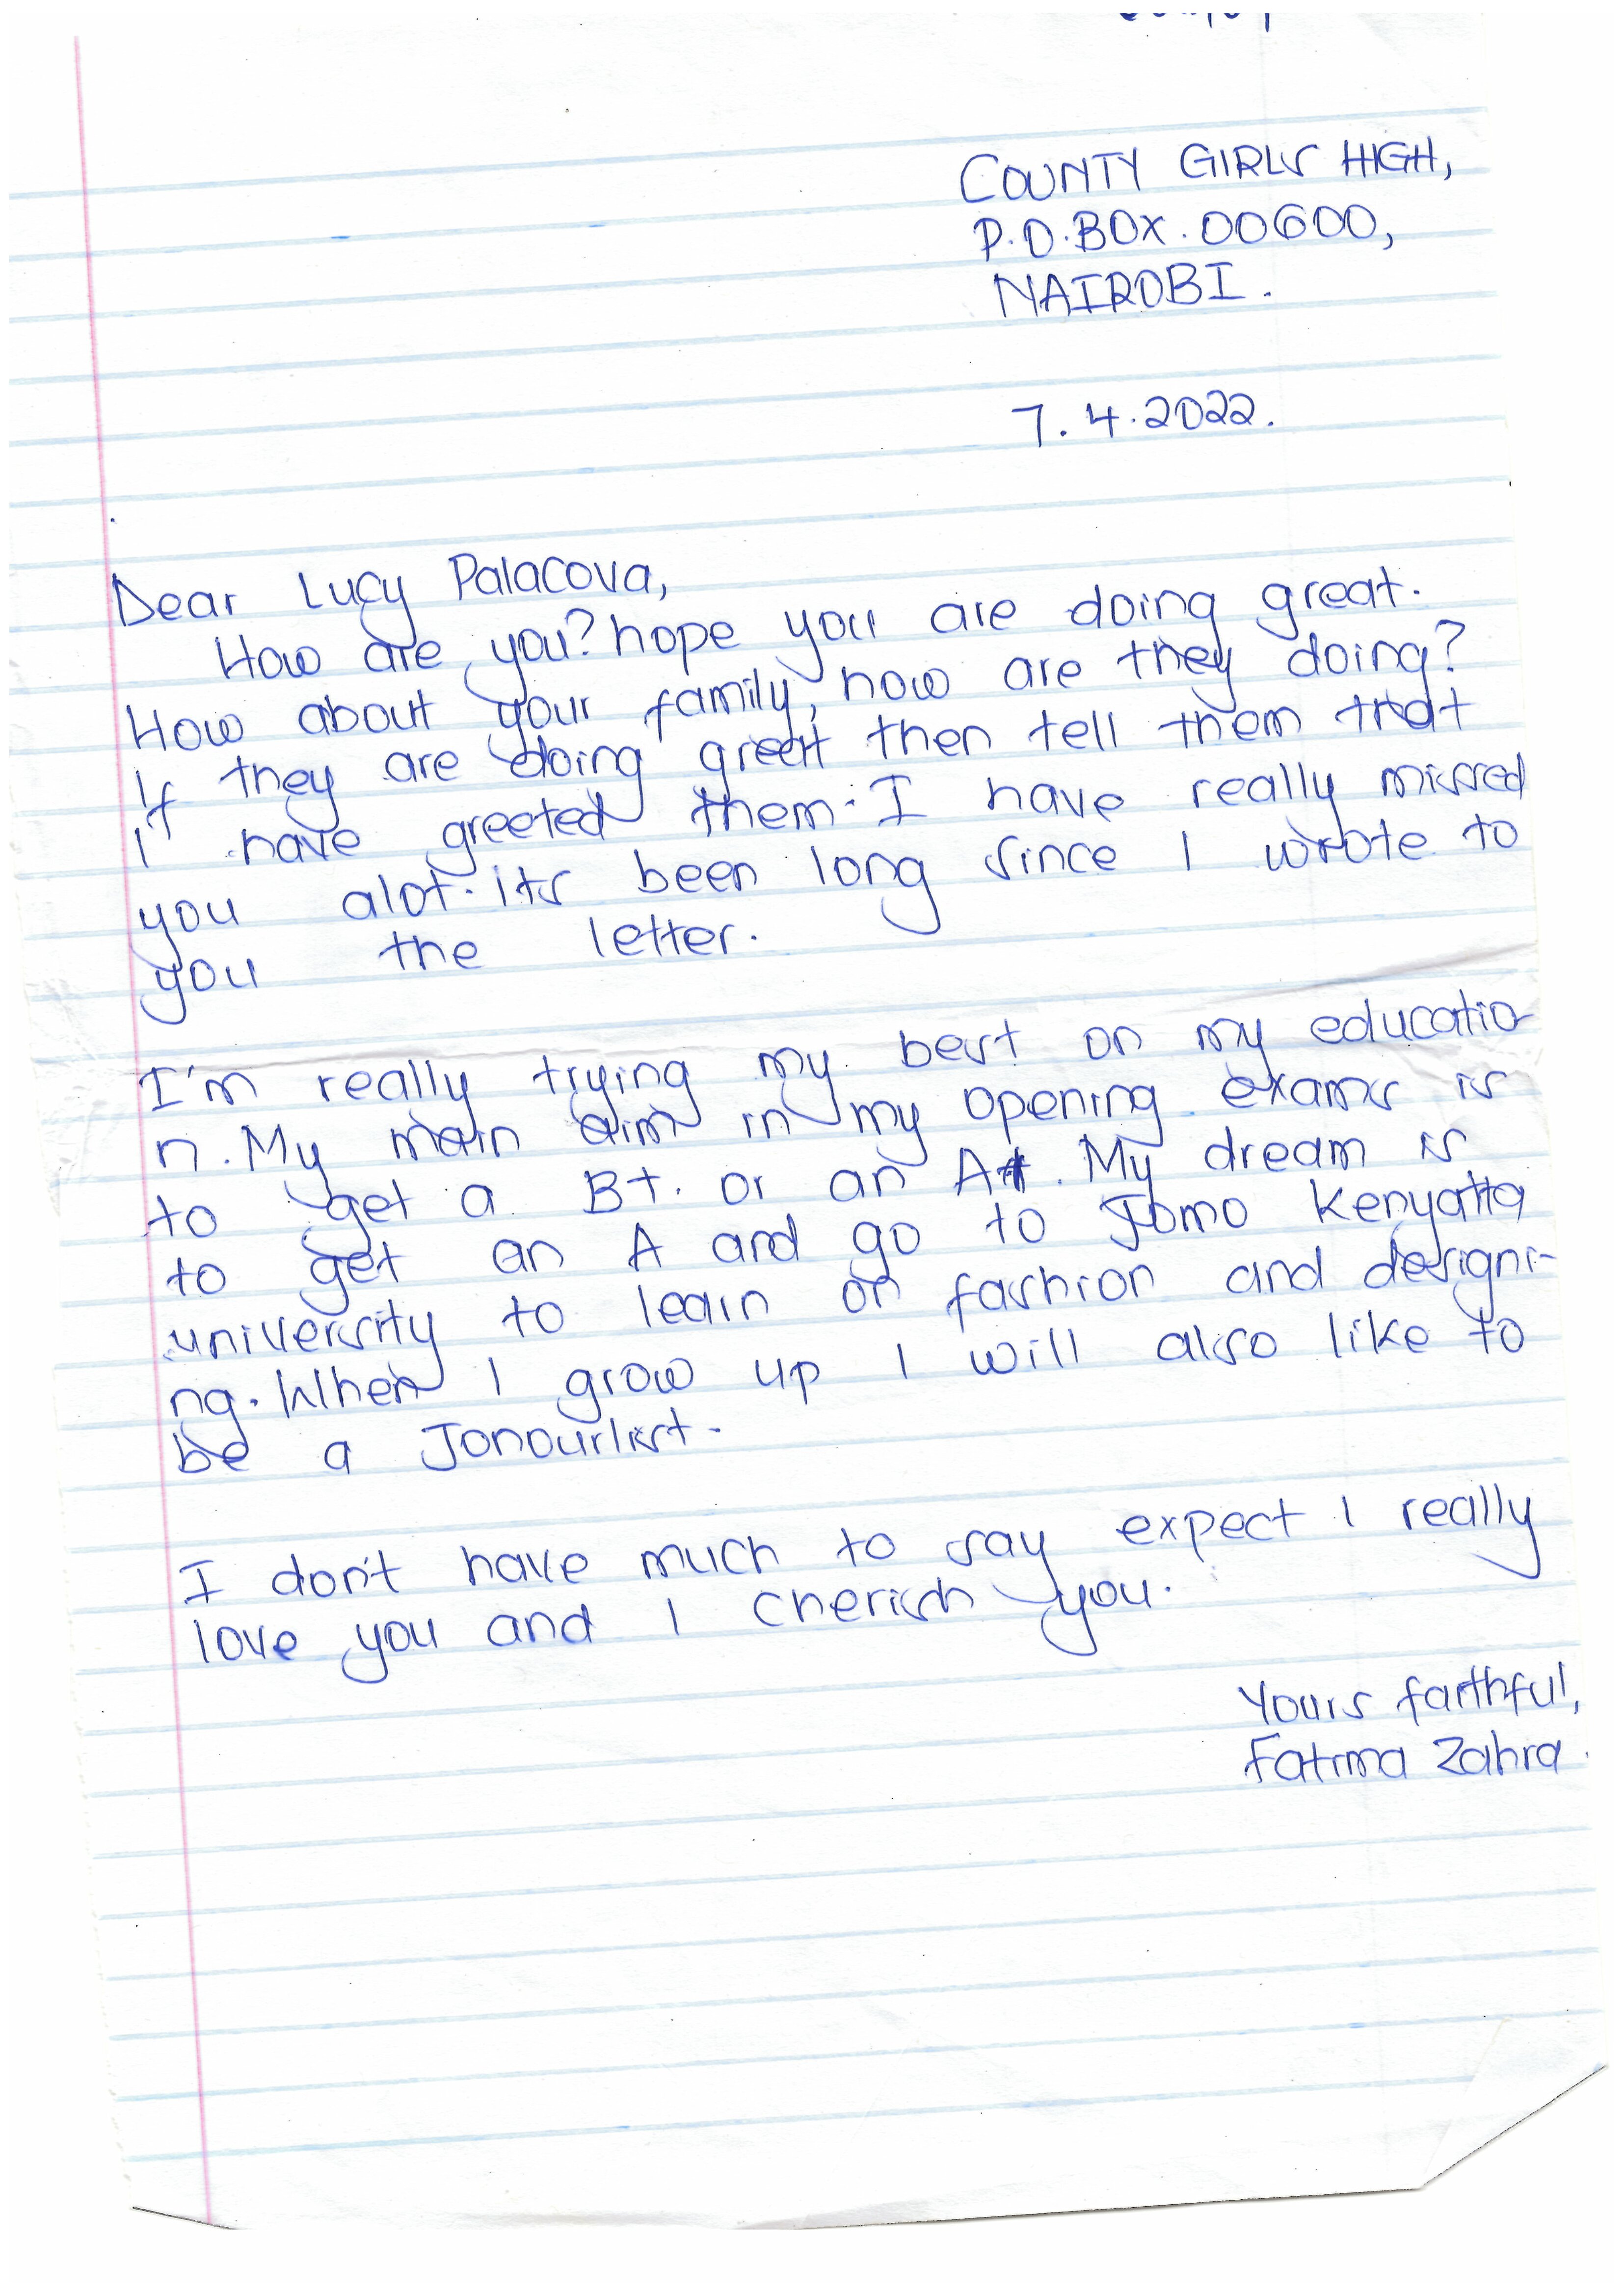 COUNTY GIRLS HIGH,
P.O.BOX.00600,
NAIROBI.
7.4.2022.
Dear Lucy Palacova,
How are you? hope you are doing great.
How about your family, how are they doing?
If they are doing great then tell them that
I have greeted them. I have really missed
you alot. its been long since I wrote to
you the letter.
I'm really trying my best on my educatio-
n. My main aim in my opening exams is
to get a B+. or an A. My dream is
to get an A and go to Jomo Kenyatta
university to learn on fashion and designi-
ng. When I grow up I will also like to
be a Jonourlist.
I don't have much to say expect I really
love you and I cherish you.
Yours faithful,
Fatima Zahra.